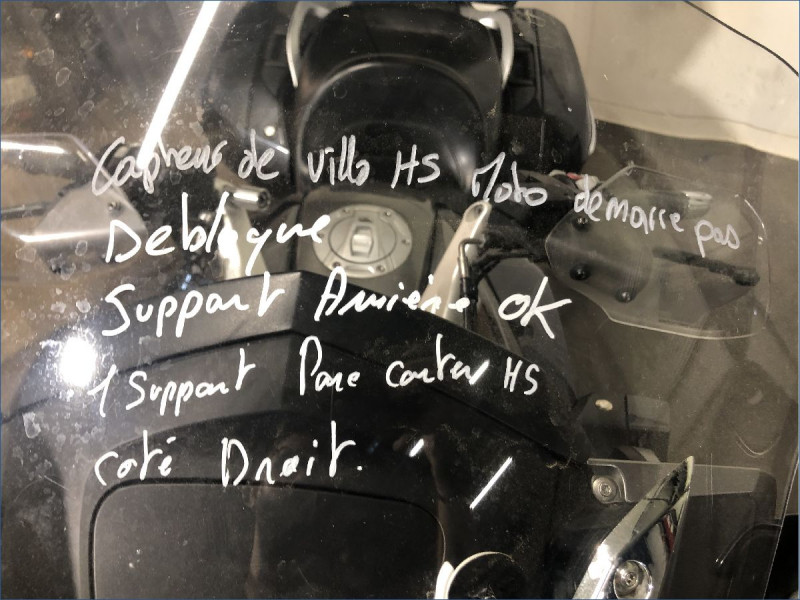 Capteur de villo HS Moto demarre pas
Debloque
Support Arriere OK
1 Support Pare carter HS
coté Droit.